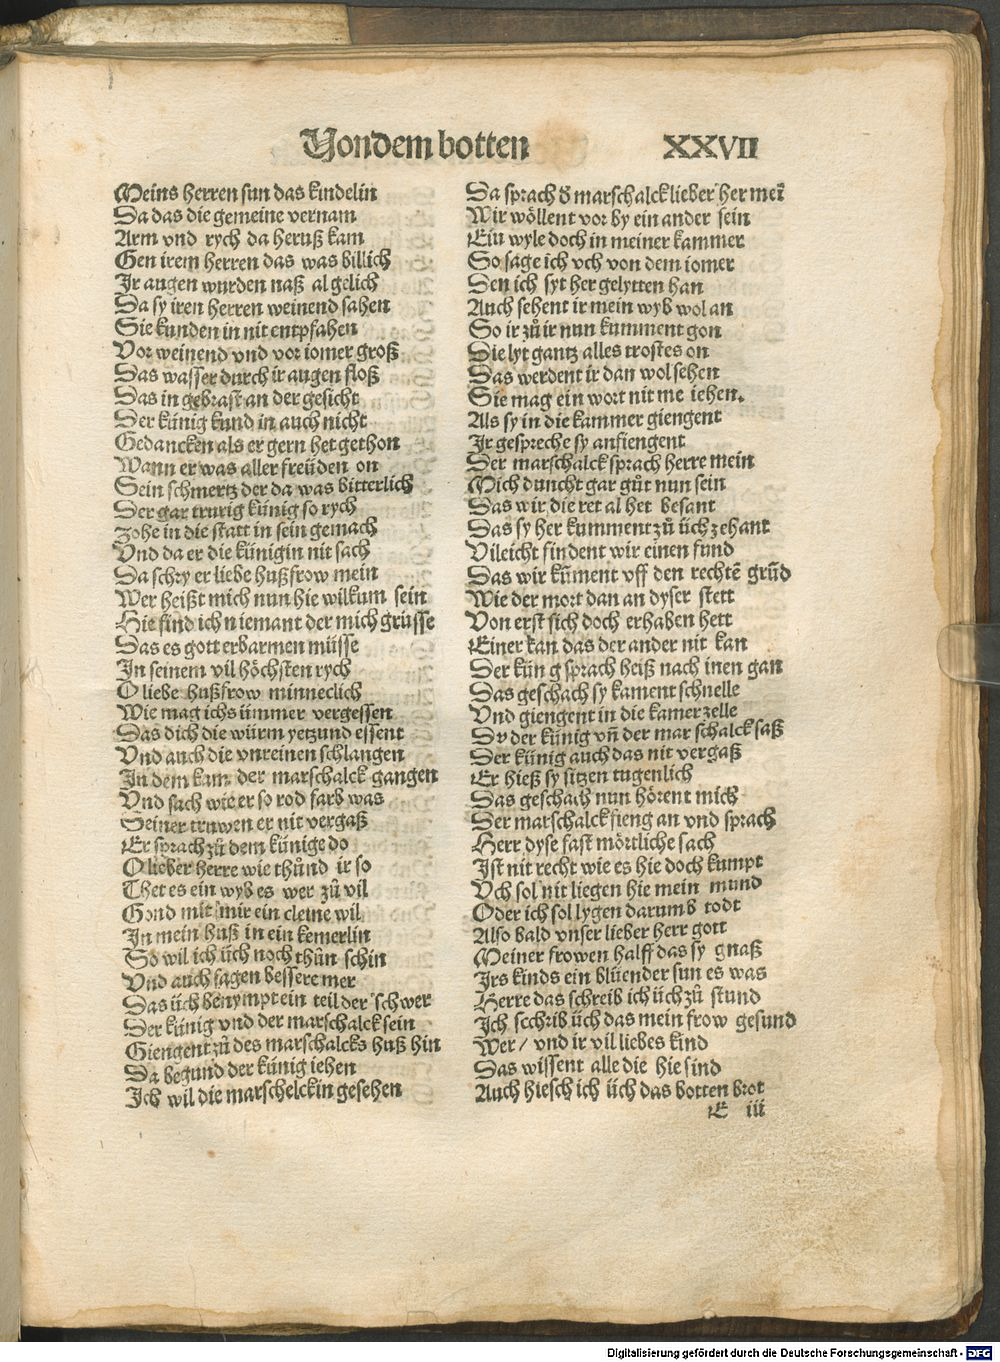 Von dem botten XXVII
Meins herren sun das kindelin
Da das die gemeine vernam
Arm vnd rych da heruß kam
Gen irem herren das was billich
Ir augen wurden naß al gelich
Da sy iren herren weinend sahen
Sie kunden in nit entpfahen
Vor weinend vnd vor iomer groß
Das wasser durch ir augen floß
Das in gebrast an der gesicht
Der künig kund in auch nicht
Gedancken als er gern het gethon
Wann er was aller freüden on
Sein schmertz der da was bitterlich
Der gar trurig künig so rych
Zohe in die statt in sein gemach
Vnd da er die künigin nit sach
Da schry er liebe hußfrow mein
Wer heißt mich nun hie wilkum sein
Hie find ich niemant der mich grüsse
Das es gott erbarmen müsse
In seinem vil höchsten rych
O liebe hußfrow minneclich
Wie mag ichs ümmer vergessen
Das dich die würm yetzund essent
Vnd auch die vnreinen schlangen
In dem kam der marschalck gangen
Vnd sach wie er so rod farb was
Seiner truwen er nit vergaß
Er sprach zů dem künige do
O lieber herre wie thůnd ir so
Thet es ein wyb es wer zů vil
Gond mit mir ein cleine wil
In mein huß in ein kemerlin
So wil ich üch noch thůn schin
Vnd auch sagen bessere mer
Das üch benympt ein teil der schwer
Der künig vnd der marschalck sein
Giengent zů des marschalcks huß hin
Da begund der künig iehen
Ich wil die marschelckin gesehen
Da sprach d̕ marschalck lieber her mei̅
Wir wöllent vor by ein ander sein
Ein wyle doch in meiner kammer
So sage ich vch von dem iomer
Den ich syt her gelytten han
Auch sehent ir mein wyb wol an
So ir zů ir nun kumment gon
Die lyt gantz alles trostes on
Das werdent ir dan wol sehen
Sie mag ein wort nit me iehen.
Als sy in die kammer giengent
Ir gespreche sy anfiengent
Der marschalck sprach herre mein
Mich duncht gar gůt nun sein
Das wir die ret al het besant
Das sy her kumment zů üch zehant
Vileicht findent wir einen fund
Das wir ku̅ment vff den rechte̅ gru̅d
Wie der mort dan an dyser stett
Von erst sich doch erhaben hett
Einer kan das der ander nit kan
Der kün g sprach heiß nach inen gan
Das geschach sy kament schnelle
Vnd giengent in die kamer zelle
Do der künig vn̅ der mar schalck saß
Der künig auch das nit vergaß
Er hieß sy sitzen tugenlich
Das geschach nun hörent mich
Der marschalck fieng an vnd sprach
Herr dyse fast mörtliche sach
Ist nit recht wie es hie doch kumpt
Vch sol nit liegen hie mein mund
Oder ich sol lygen darumb todt
Also bald vnser lieber herr gott
Meiner frowen halff das sy gnaß
Irs kinds ein blüender sun es was
Herre das schreib ich üch zů stund
Ich scchrib üch das mein frow gesund
Wer / vnd ir vil liebes kind
Das wissent alle die hie sind
Auch hiesch ich üch das botten brot
E iii
Digitalisierung gefördert durch die Deutsche Forschungsgemeinschaft - DFG